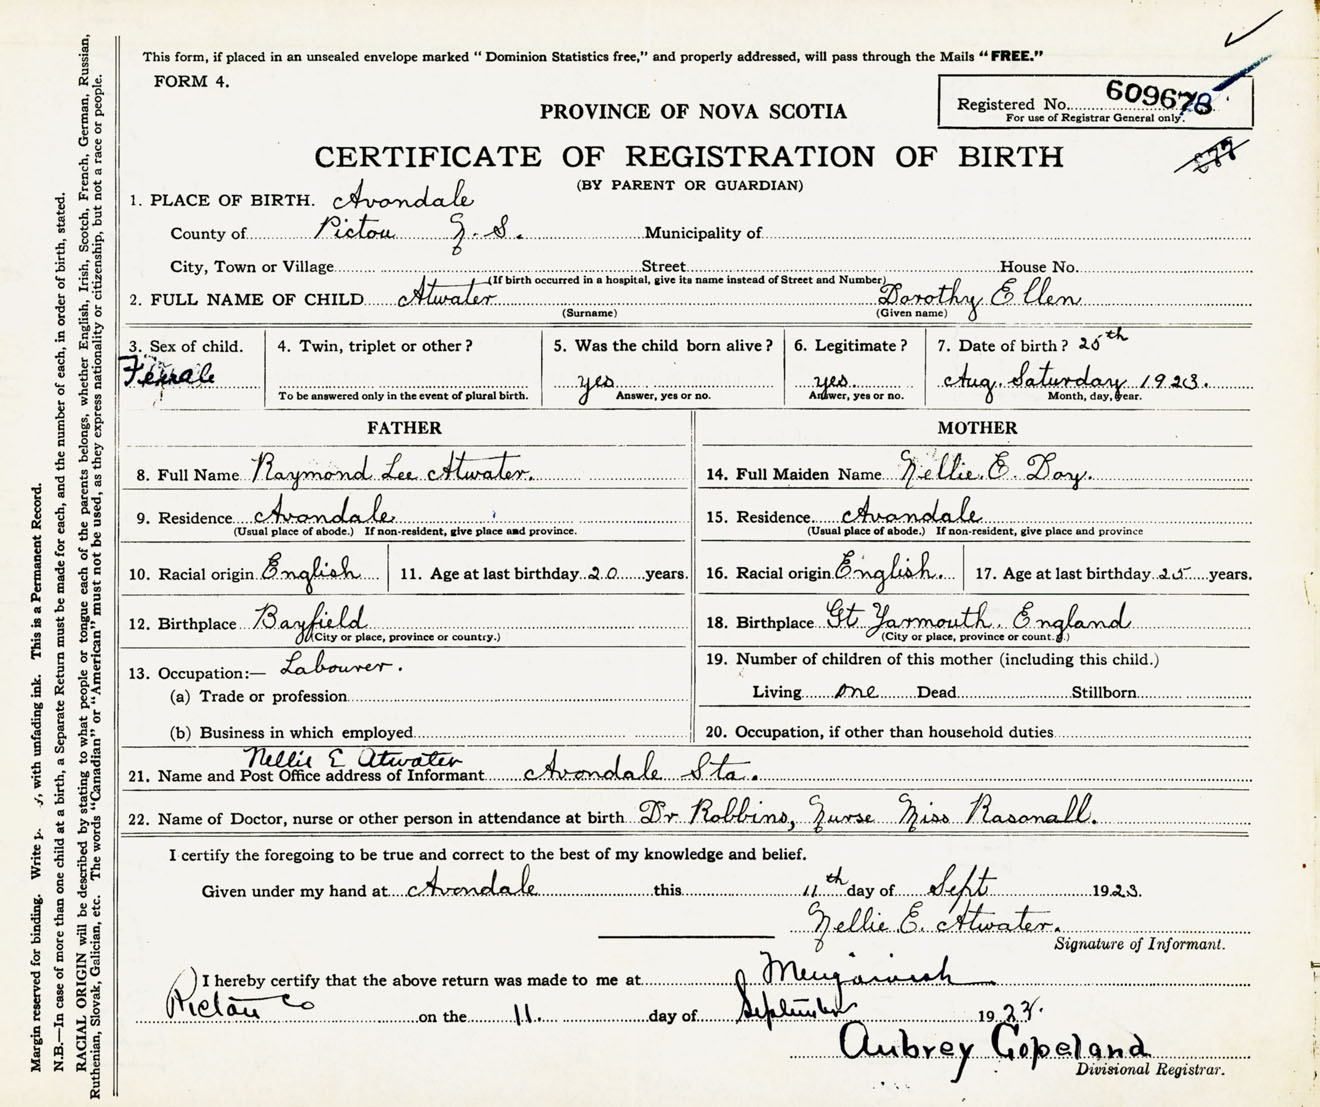 This form, if placed in an unsealed envelope marked "Dominion Statistics free," and properly addressed, will pass through the Mails "FREE."
FORM 4.
Registered No. 609678
For use of Registrar General only.
PROVINCE OF NOVA SCOTIA
CERTIFICATE OF REGISTRATION OF BIRTH
877
(BY PARENT OR GUARDIAN)
1. PLACE OF BIRTH. Avondale
County of Pictou N. S. Municipality of
City, Town or Village Street House No.
(If birth occurred in a hospital, give its name instead of Street and Number)
2. FULL NAME OF CHILD Atwater Dorothy Ellen
(Surname) (Given name)
3. Sex of child. Female
4. Twin, triplet or other?
To be answered only in the event of plural birth.
5. Was the child born alive? yes
Answer, yes or no.
6. Legitimate? yes.
Answer, yes or no.
7. Date of birth? 25th
Aug. Saturday 1923.
Month, day, year.
FATHER
8. Full Name Raymond Lee Atwater.
9. Residence Avondale
(Usual place of abode.) If non-resident, give place and province.
10. Racial origin English 11. Age at last birthday 20 years.
12. Birthplace Bayfield
(City or place, province or country.)
13. Occupation:— Labourer.
(a) Trade or profession
(b) Business in which employed
MOTHER
14. Full Maiden Name Nellie E. Doy.
15. Residence Avondale
(Usual place of abode.) If non-resident, give place and province
16. Racial origin English. 17. Age at last birthday 25 years.
18. Birthplace Gt Yarmouth. England
(City or place, province or count.y.)
19. Number of children of this mother (including this child.)
Living one Dead Stillborn
20. Occupation, if other than household duties
Nellie E Atwater
21. Name and Post Office address of Informant Avondale Sta.
22. Name of Doctor, nurse or other person in attendance at birth Dr Robbins, Nurse Miss Rasonall.
I certify the foregoing to be true and correct to the best of my knowledge and belief.
Given under my hand at Avondale this 11th day of Sept 1923.
Nellie E. Atwater.
Signature of Informant.
I hereby certify that the above return was made to me at
Pictou Co on the 11. day of September 1923.
Aubrey Copeland
Divisional Registrar.
Margin reserved for binding. Write with unfading ink. This is a Permanent Record.
N.B.—In case of more than one child at a birth, a Separate Return must be made for each, and the number of each, in order of birth, stated.
RACIAL ORIGIN will be described by stating to what people or tongue each of the parents belongs, whether English, Irish, Scotch, French, German, Russian,
Ruthenian, Slovak, Galician, etc. The words "Canadian" or "American" must not be used, as they express nationality or citizenship, but not a race or people.